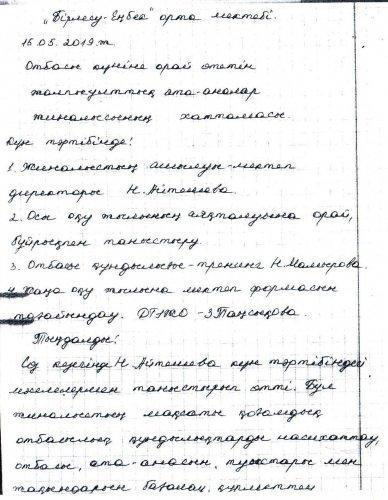 "Бірлесу-Еңбек" орта мектебі.
15.05.2019ж
Отбасы күніне орай өтетін
жалпыұлттық ата-аналар
жиналысының хаттамасы.
Күн тәртібінде:
1. Жиналыстың ашылуы-мектеп
директоры Н.Айтешева.
2. Осы оқу жылының аяқталуына орай,
бұйрықпен таныстыру.
3. Отбасы құндылығы-тренинг Н.Мамырова.
4. Жаңа оқу жылына мектеп формасын
тағайындау. ДТІЖО -З.Таңсықова.
Тыңдалды:
Сөз кезегінде Н.Айтешева күн тәртібіндегі
мәселелермен таныстырып өтті. Бұл
жиналыстың мақсаты қоғамдық
отбасылық құндылықтарды насихаттау,
отбасы, ата-анасын, туыстары мен
жақындарын бағалау, құрметтеп